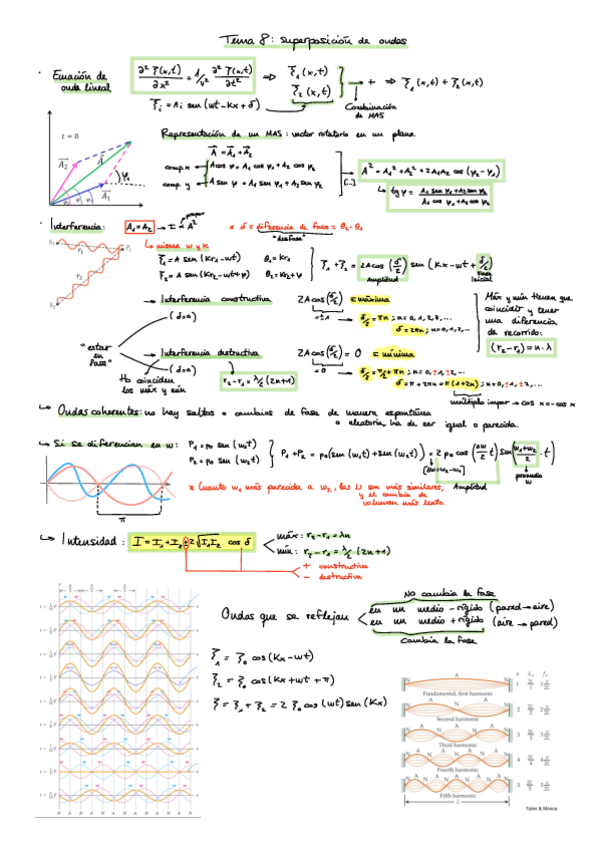 Tema 8: superposición de ondas
· Ecuación de onda lineal
∂²ξ(x,t)/∂x² = 1/v² ∂²ξ(x,t)/∂t² ⇒ ξ₁(x,t) ξ₂(x,t) } + ⇒ ξ₁(x,t) + ξ₂(x,t)
ξᵢ = Aᵢ sen(wt-Kx+δ)
Combinación de MAS
t = 0
Representación de un MAS: vector rotatorio en un plano.
A = A₁ + A₂
comp. x A cos φ = A₁ cos φ₁ + A₂ cos φ₂
comp. y A sen φ = A₁ sen φ₁ + A₂ sen φ₂
[...]
A² = A₁² + A₂² + 2A₁A₂ cos(φ₂-φ₁)
↳ tg φ = (A₁ sen φ₁ + A₂ sen φ₂)/(A₁ cos φ₁ + A₂ cos φ₂)
· Interferencia: A₁=A₂ → I ∝ A²
* δ = diferencia de fase = θ₂-θ₁
"desfase"
S₁ r₁ P₁
S₂ r₂
↳ misma w y K
ξ₁ = A sen(Kr₁-wt) θ₁=Kr₁
ξ₂ = A sen(Kr₂-wt+φ) θ₂=Kr₂+φ
ξ₁+ξ₂ = 2A cos(δ/2) sen(Kx-wt+δ/2)
Amplitud
Fase inicial
Interferencia constructiva
2A cos(δ/2) = máxima
= ±1
δ/2 = πn; n=0,1,2,...
δ = 2πn; n=0,1,2,...
Máx y mín tienen que coincidir y tener una diferencia de recorrido:
(r₂-r₁) = n·λ
(δ=0)
"estar en fase"
Interferencia destructiva
(δ=0)
No coinciden los máx y mín
r₂-r₁ = λ/2 (2n+1)
2A cos(δ/2) = 0 = mínima
= 0
δ/2 = π/2 + πn; n=0,±1,±2,...
δ = π+2πn = π(1+2n); n=0,±1,±2,...
múltiplo impar → cos x = -cos x
↳ Ondas coherentes: no hay saltos o cambios de fase de manera espontánea
o aleatoria, ha de ser igual o parecida.
↳ Si se diferencian en w:
P₁ = p₀ sen(w₁t)
P₂ = p₀ sen(w₂t)
P₁+P₂ = p₀(sen(w₁t)+sen(w₂t)) = 2p₀ cos(Δw/2 t) sen((w₁+w₂)/2 · t)
[Δw=w₂-w₁]
Amplitud
promedio w
* Cuanto w₁ más parecida a w₂, las ξ son más similares,
y el cambio de
volumen más lento.
π
↳ Intensidad: I = I₁+I₂ ± 2√I₁I₂ cos δ
máx: r₂-r₁ = λn
mín: r₂-r₁ = λ/2 (2n+1)
+ constructiva
- destructiva
Ondas que se reflejan
No cambia la fase
en un medio - rígido (pared → aire)
en un medio + rígido (aire → pared)
Cambia la fase
ξ₁ = ξ₀ cos(Kx-wt)
ξ₂ = ξ₀ cos(Kx+wt+π)
ξ = ξ₁+ξ₂ = 2ξ₀ cos(wt) sen(Kx)
Fundamental, first harmonic
Second harmonic
Third harmonic
Fourth harmonic
Fifth harmonic
L
Tipler & Mosca